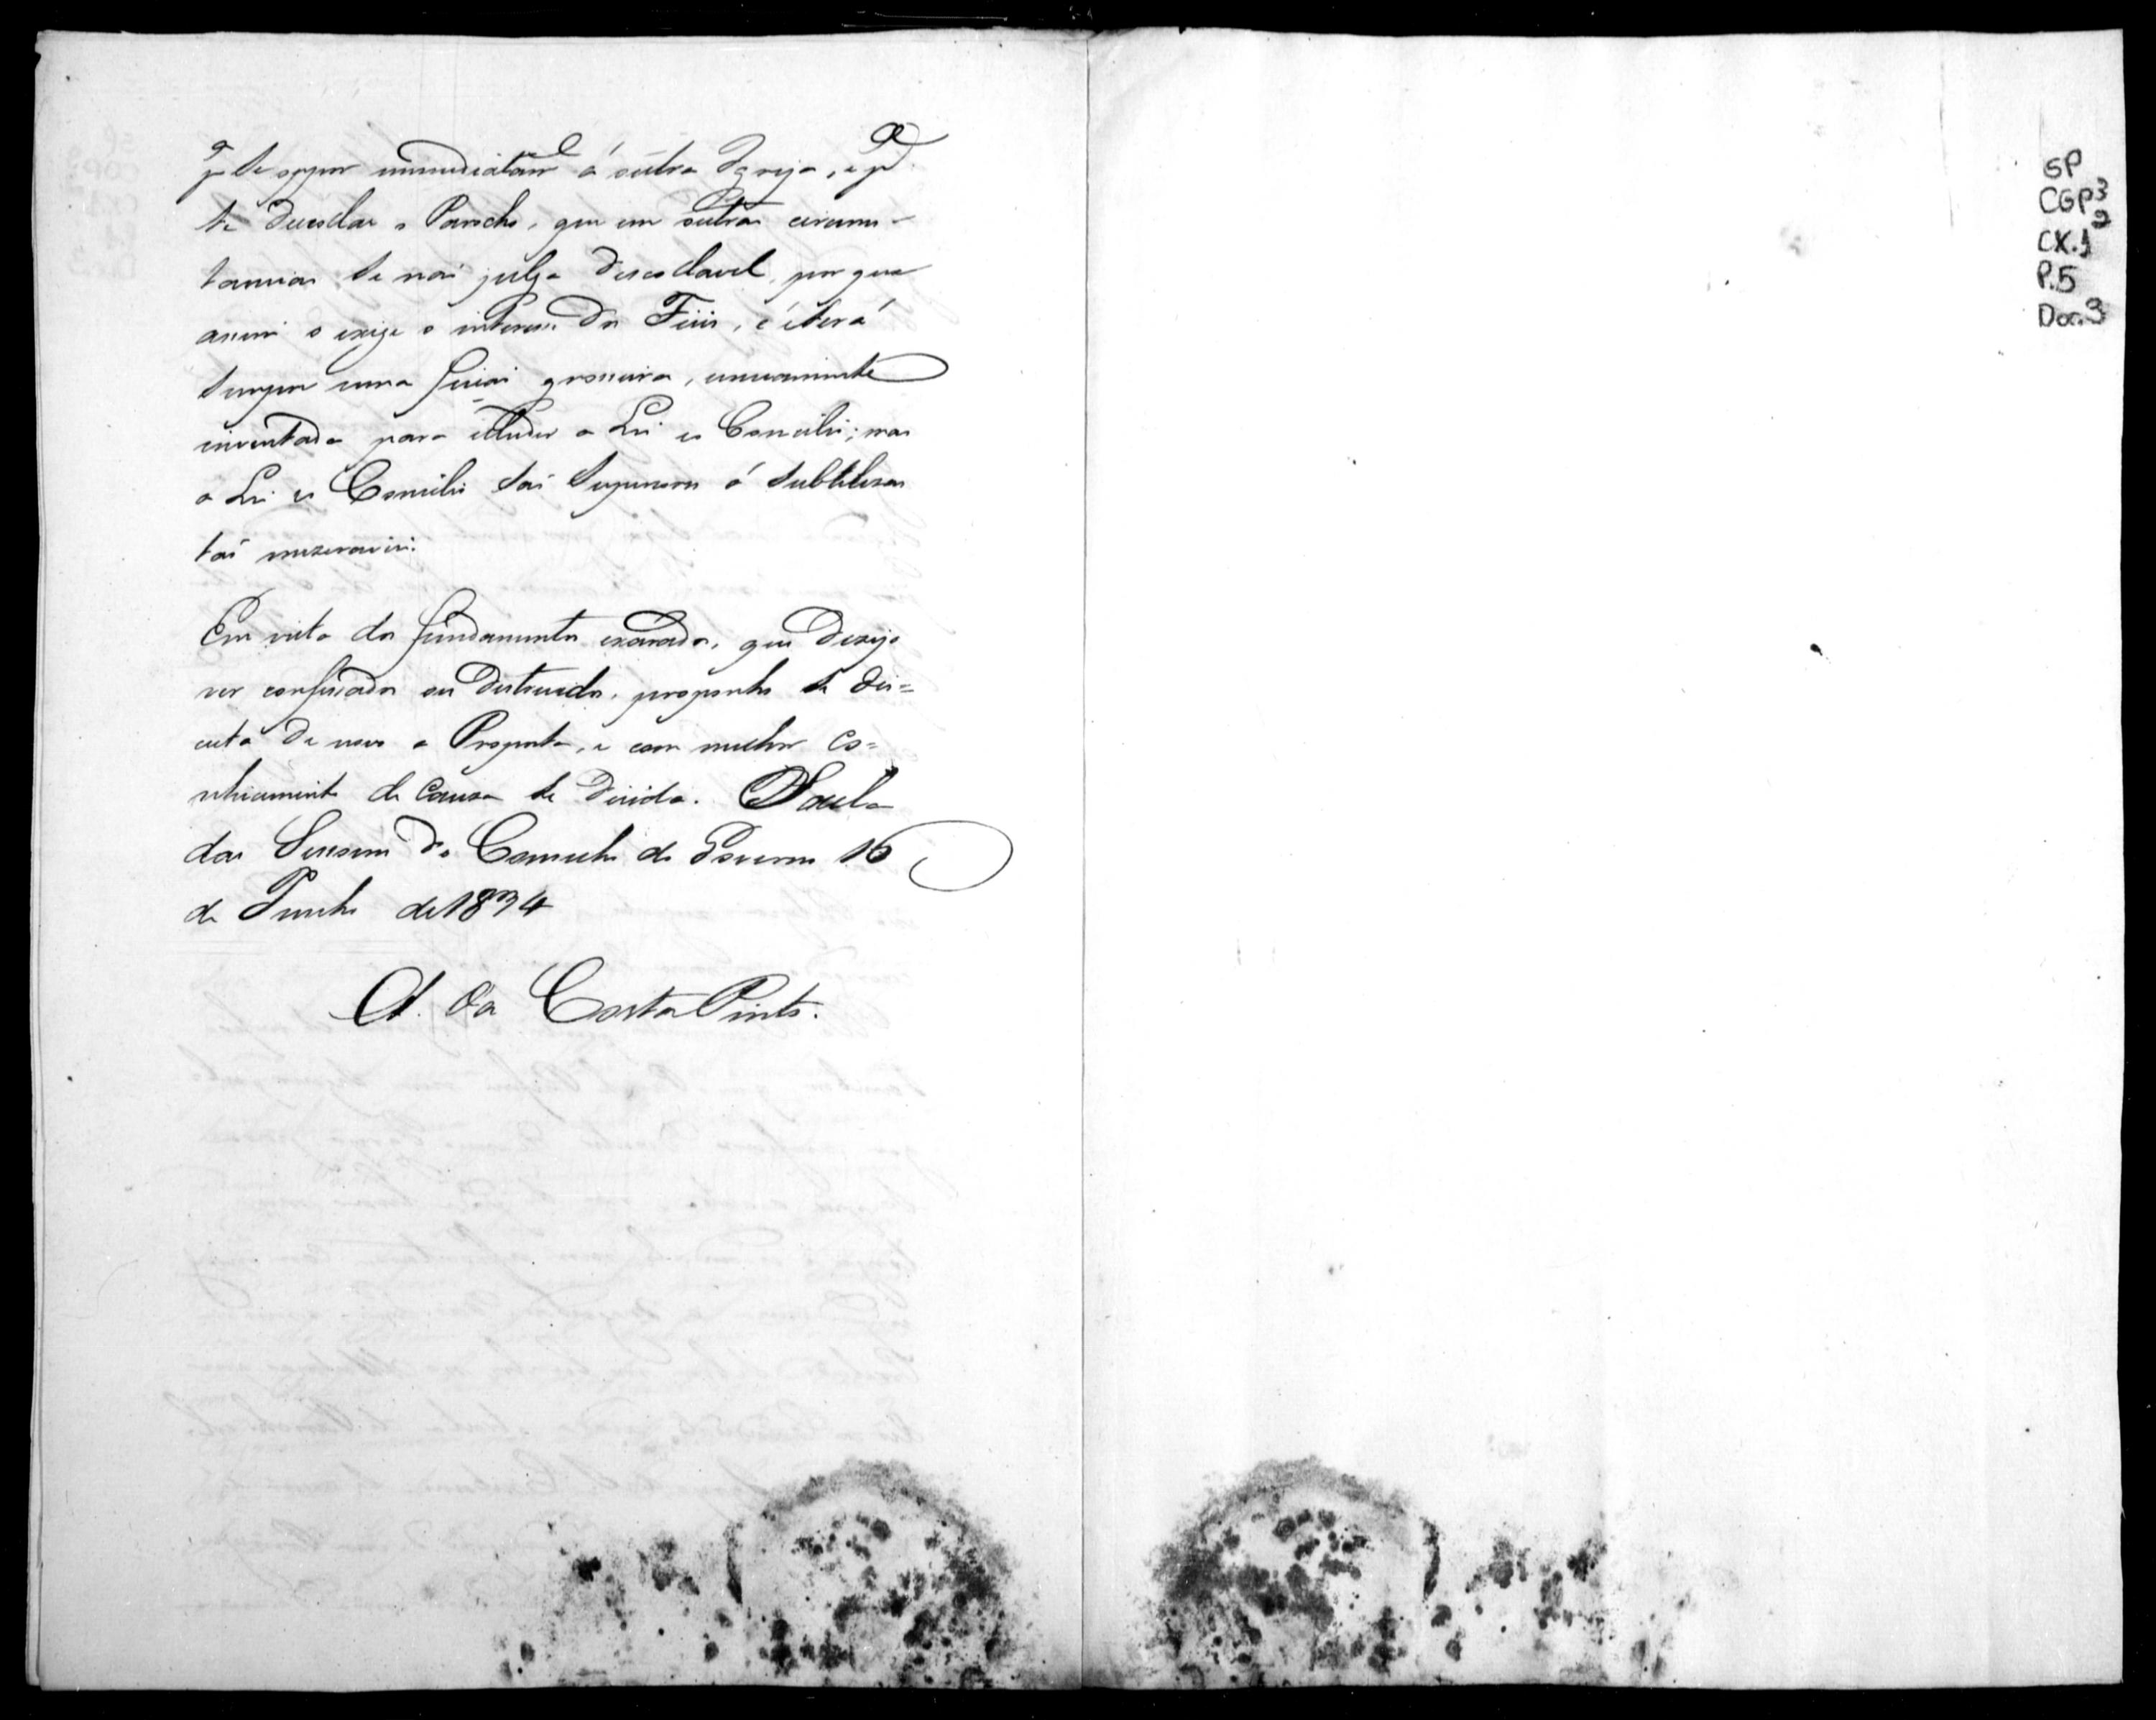 q̃ se oppor immediatam.e á outra Igreja, e p.a
se descolar o Parocho, que em outras circuns-
tancias se não julga descolavel, por que
assim o exige o interesse dos Fieis, é e será
sempre uma ficção grosseira, unicamente
inventada para illudir a Lei e o Concilio; mas
a Lei e o Concilio são superiores á subtilezas
tão miseraveis.
Em vista dos fundamentos exarados, que desejo
ver confirmados ou destruidos, proponho se dis=
cuta de novo a Proposta, e com melhor co=
nhecimento de causa se decida. Salla
das Sessoens do Conselho do Governo 16
de Junho de 1834
A. da Costa Pinto.
GP
CGP3
CX.1
P.5
Doc.3